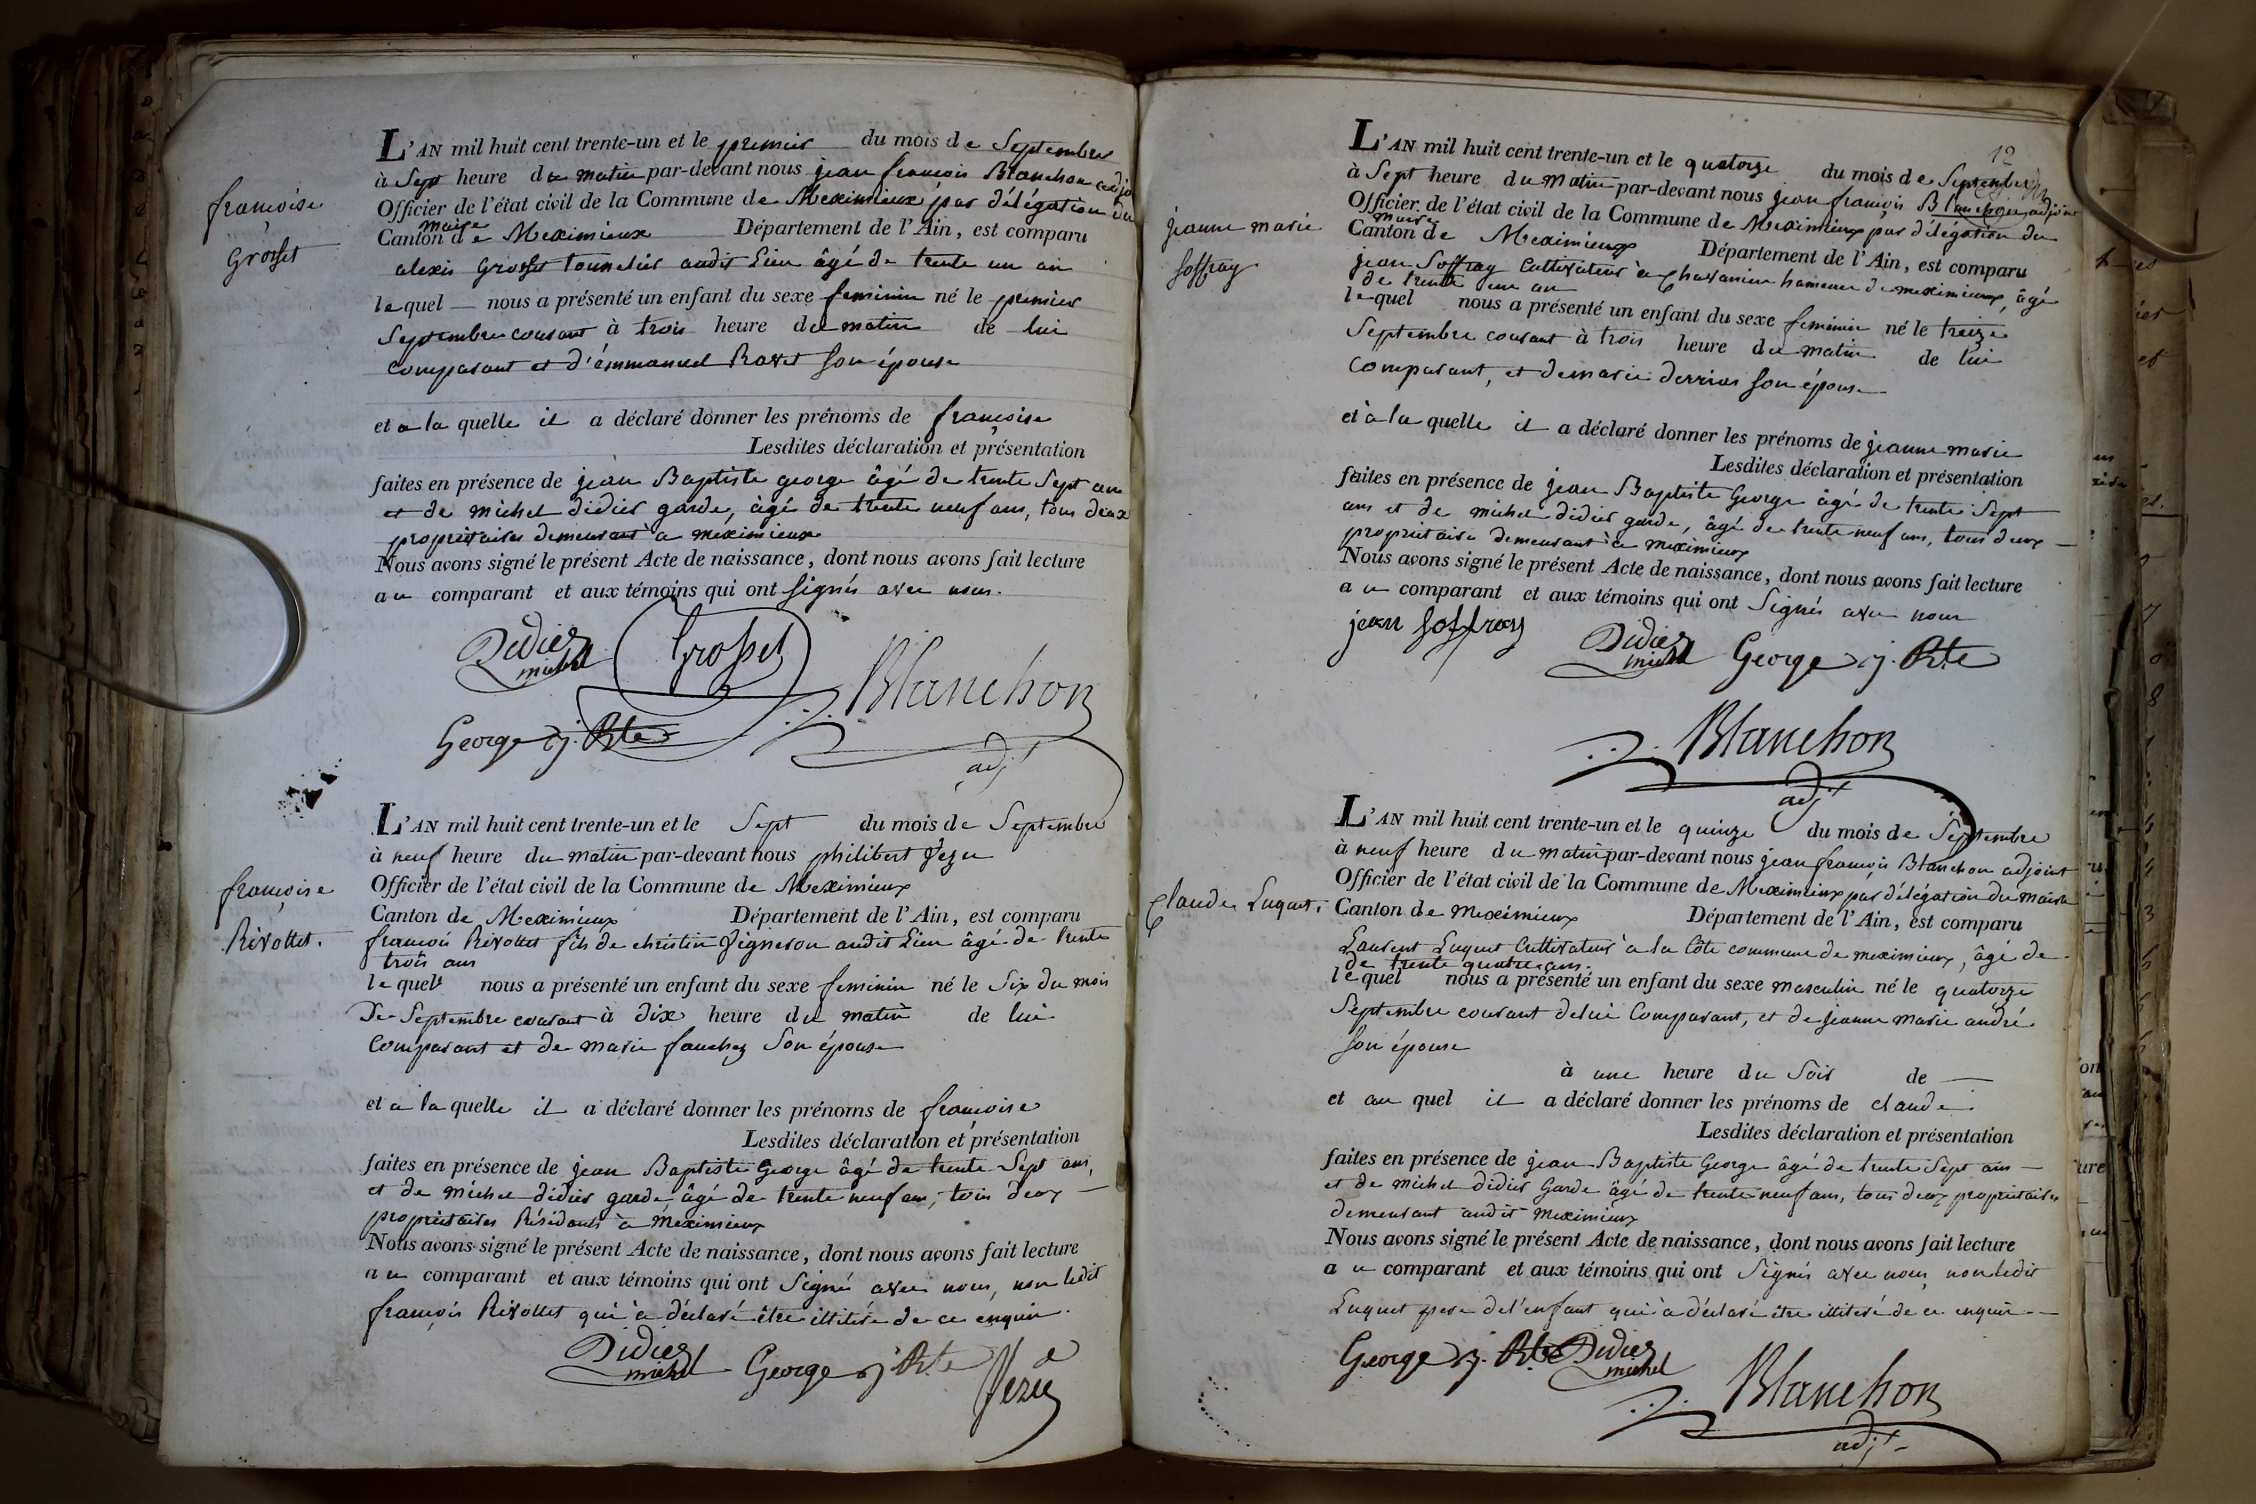 françoise
Grosset
L'AN mil huit cent trente-un et le premier du mois de Septembre
à Sept heure du matin par-devant nous jean françois Blanchon adjoint
Officier de l'état civil de la Commune de Meximieux par délégation du
maire
Canton de Meximieux Département de l'Ain, est comparu
alexis Grosset tonnelier audit Lieu âgé de trente un an
lequel nous a présenté un enfant du sexe feminin né le premier
Septembre courant à trois heure du matin de lui
comparant et d'émmanuel Ravet son épouse
et a la quelle il a déclaré donner les prénoms de françoise
Lesdites déclaration et présentation
faites en présence de jean Baptiste george âgé de trente Sept ans
et de michel didier garde, âgé de trente neuf ans, tous deux
propriétaires demeurant à meximieux
Nous avons signé le présent Acte de naissance, dont nous avons fait lecture
au comparant et aux témoins qui ont signés avec nous.
Didier
michel
Grosset
Blanchon
George j. Bte
adjt
françoise
Rivollet.
L'AN mil huit cent trente-un et le Sept du mois de Septembre
à neuf heure du matin par-devant nous philibert Jezu
Officier de l'état civil de la Commune de Meximieux
Canton de Meximieux Département de l'Ain, est comparu
francois Rivollet fils de christin Vigneron audit Lieu âgé de trente
trois ans
lequel nous a présenté un enfant du sexe feminin né le Six du mois
De Septembre courant à dix heure du matin de lui
comparant et de marie fauchez Son épouse
et à la quelle il a déclaré donner les prénoms de françoise
Lesdites déclaration et présentation
faites en présence de jean Baptiste George âgé de trente Sept ans,
et de michel didier garde âgé de trente neuf ans, tous deux
propriétaires Résidants à Meximieux
Nous avons signé le présent Acte de naissance, dont nous avons fait lecture
au comparant et aux témoins qui ont Signé avec nous, non ledit
françois Rivollet qui à déclaré être illitéré de ce enquis.
Didier
michel
George j Bte
12
jeanne marie
Soffray
L'AN mil huit cent trente-un et le quatorze du mois de Septembre
à Sept heure du Matin par-devant nous jean françois Blanchon adjoint
Officier de l'état civil de la Commune de Meximieux par délégation du
maire
Canton de Meximieux Département de l'Ain, est comparu
jean Soffray Cultivateur à Chavanieu hameau de meximieux, âgé
de trente un an
lequel nous a présenté un enfant du sexe feminin né le treize
Septembre courant à trois heure du matin de lui
comparant, et de marie derrias son épouse
et à la quelle il a déclaré donner les prénoms de jeanne marie
Lesdites déclaration et présentation
faites en présence de jean Baptiste George âgé de trente Sept
ans et de michel didier garde, âgé de trente neuf ans, tous deux
propriétaires demeurant à meximieux
Nous avons signé le présent Acte de naissance, dont nous avons fait lecture
au comparant et aux témoins qui ont Signés avec nous
jean Soffray
Didier
michel
George j. Bte
Blanchon
adjt
Claude Luquet.
L'AN mil huit cent trente-un et le quinze du mois de Septembre
à neuf heure du matin par-devant nous jean françois Blanchon adjoint
Officier de l'état civil de la Commune de Meximieux par délégation du maire
Canton de Meximieux Département de l'Ain, est comparu
Laurent Luquet Cultivateur à la Côte commune de meximieux, âgé de
de trente quatre ans.
lequel nous a présenté un enfant du sexe masculin né le quatorze
Septembre courant de lui Comparant, et de jeanne Marie andré
son épouse
à une heure du Soir de
et au quel il a déclaré donner les prénoms de claude
Lesdites déclaration et présentation
faites en présence de jean Baptiste George âgé de trente Sept ans
et de michel didier Garde âgé de trente neuf ans, tous deux propriétaires
demeurant audit Meximieux
Nous avons signé le présent Acte de naissance, dont nous avons fait lecture
au comparant et aux témoins qui ont Signés avec nous, non ledit
Luquet pere de l'enfant qui à déclaré être illitéré de ce enquis
George j. Bte
Didier
michel
Blanchon
adjt